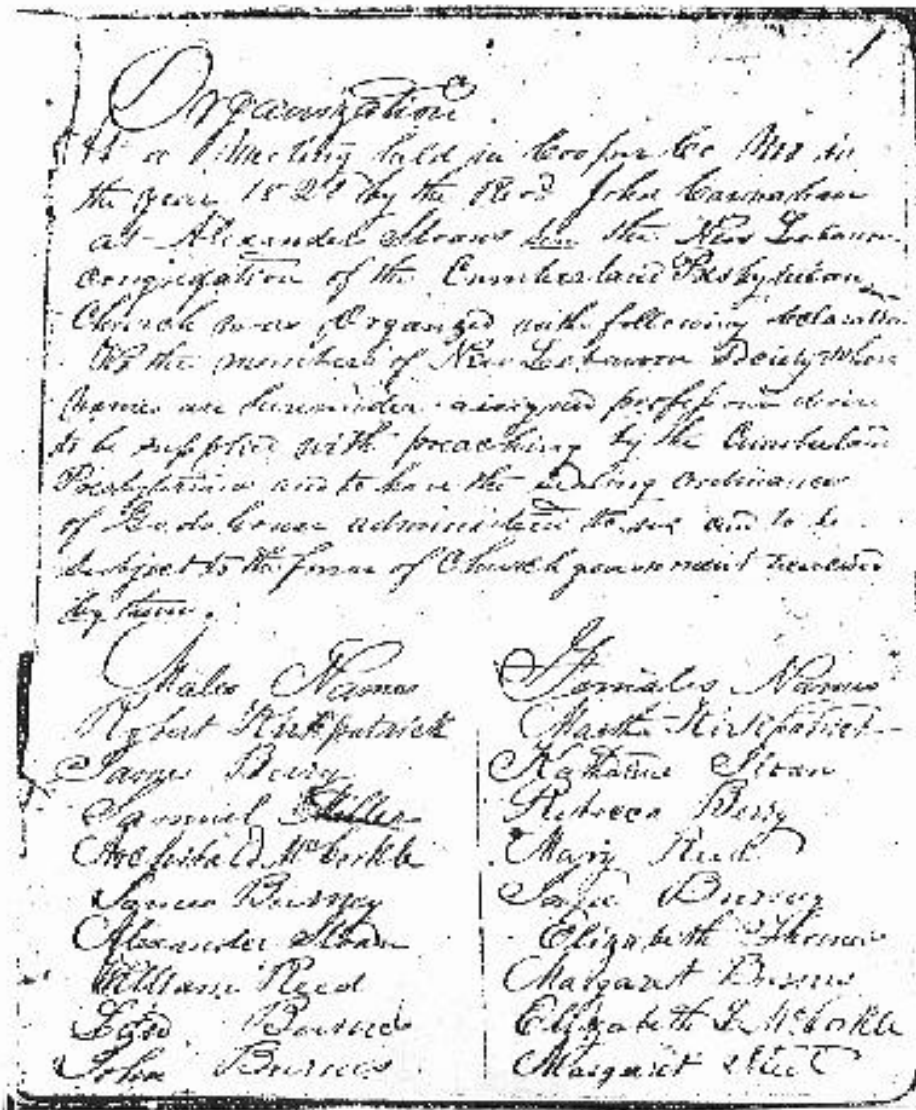 1
Organization
At a Meeting held in Cooper Co Mo in
the year 1820 by the Revd John Carnahan
at Alexander Sloans the New Lebanon
Congregation of the Cumberland Presbyterian
Church was Organized with following declaration
We the members of New Lebanon Society whose
names are hereunder assigned desire
to be supplied with preaching by the Cumberland
Presbyterians and to have the Sealing Ordinances
of Gods house administered to us and to be
Subject to the form of Church government
by them.
Males Names
Robert Kirkpatrick
James Berry
Samuel
Archibald McCorkle
James Burney
Alexander Sloan
William Reed
Burnes
John Burnes
Females Names
Martha Kirkpatrick
Katharine Sloan
Rebecca Berry
Mary Reed
Burney
Elizabeth Thomas
Margaret Burnes
Elizabeth L McCorkle
Margaret